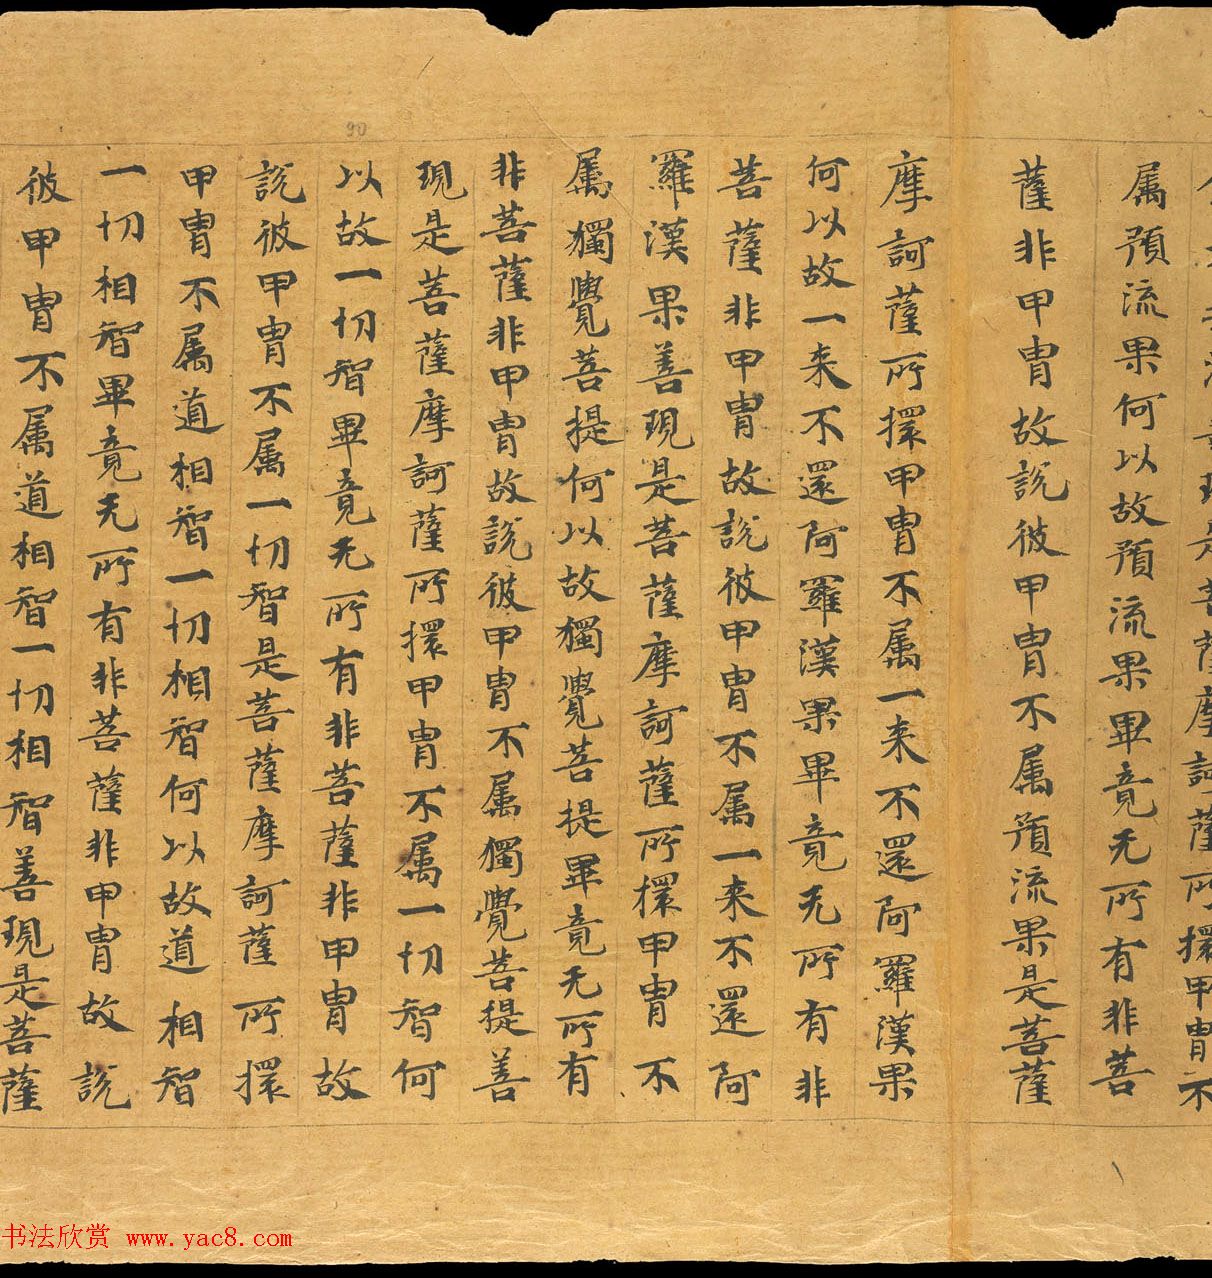 是菩薩摩訶薩所擐甲冑不
属預流果何以故預流果畢竟无所有非菩
薩非甲冑故說彼甲冑不属預流果是菩薩
摩訶薩所擐甲冑不属一来不還阿羅漢果
何以故一来不還阿羅漢果畢竟无所有非
菩薩非甲冑故說彼甲冑不属一来不還阿
羅漢果善現是菩薩摩訶薩所擐甲冑不
属獨覺菩提何以故獨覺菩提畢竟无所有
非菩薩非甲冑故說彼甲冑不属獨覺菩提善
現是菩薩摩訶薩所擐甲冑不属一切智何
以故一切智畢竟无所有非菩薩非甲冑故
說彼甲冑不属一切智是菩薩摩訶薩所擐
甲冑不属道相智一切相智何以故道相智
一切相智畢竟无所有非菩薩非甲冑故說
彼甲冑不属道相智一切相智善現是菩薩
90
书法欣赏 www.yac8.com